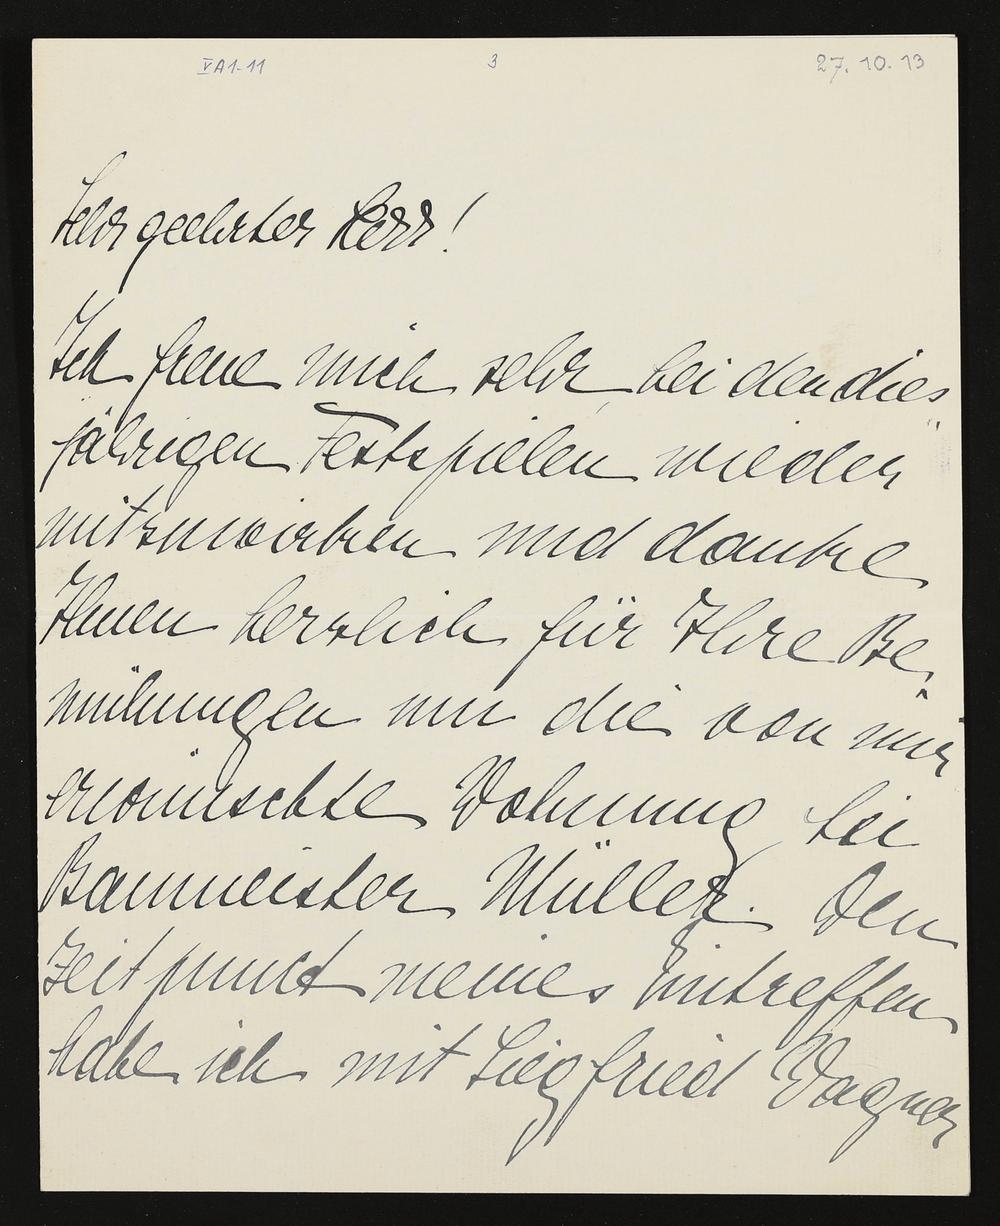 VA1-11 3 27.10.13
Sehr geehrter Herr!
Ich freue mich sehr bei den dies
jährigen Festspielen wieder
mitzuwirken und danke
Ihnen herzlich für Ihre Be-
mühungen um die von mir
erwünschte Wohnung bei
Baumeister Müller. Den
Zeitpunct meines Eintreffen
habe ich mit Siegfried Wagner